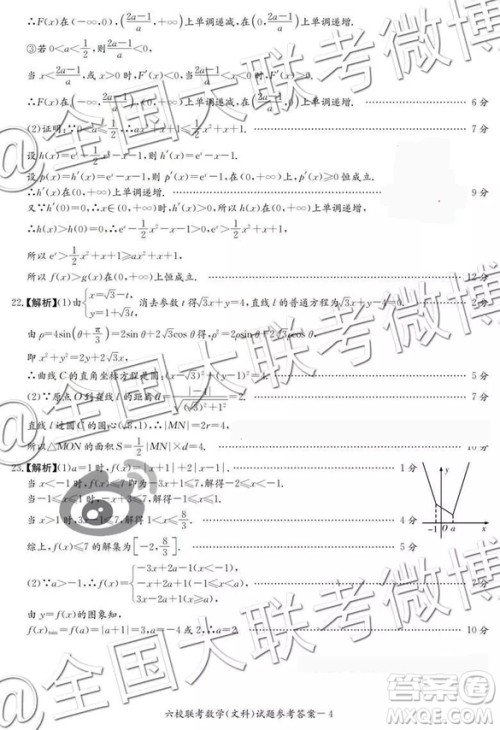 ∴F(x)在(-∞,0),((2a-1)/a,+∞)上单调递减,在(0,(2a-1)/a)上单调递增.
③若0<a<1/2,则(2a-1)/a<0,
当x<(2a-1)/a 或x>0时,F′(x)<0,当(2a-1)/a<x<0时,F′(x)>0.
∴F(x)在(-∞,(2a-1)/a),(0,+∞)上单调递减,在((2a-1)/a,0)上单调递增. 6分
(2)证明:∵0<a≤1/2,∴ax²+x+1≤1/2x²+x+1. 7分
设h(x)=eˣ-1/2x²-x-1,则h′(x)=eˣ-x-1.
设p(x)=h′(x)=eˣ-x-1,则p′(x)=eˣ-1,在(0,+∞)上,p′(x)≥0恒成立.
∴h′(x)在(0,+∞)上单调递增. 9分
又∵h′(0)=0,∴x∈(0,+∞)时,h′(x)>0,所以h(x)在(0,+∞)上单调递增,
∴h(x)>h(0)=0,∴eˣ-1/2x²-x-1>0,eˣ>1/2x²+x+1,
所以eˣ>1/2x²+x+1≥ax²+x+1,
所以f(x)>g(x)在(0,+∞)上恒成立. 12分
22.【解析】(1)由{x=√3-t, y=1+√3t,消去参数t得√3x+y=4,直线l的普通方程为√3x+y-4=0. 2分
由ρ=4sin(θ+π/3)=2sinθ+2√3cosθ得,ρ²=2ρsinθ+2√3ρcosθ,
即x²+y²=2y+2√3x,
∴曲线C的直角坐标方程是圆:(x-√3)²+(y-1)²=4. 5分
(2)∵原点O到直线l的距离d=|-4|/√((√3)²+1²)=2. 7分
直线l过圆C的圆心(√3,1),∴|MN|=2r=4,
所以△MON的面积S=1/2|MN|×d=4. 10分
23.【解析】(1)a=1时,f(x)=|x+1|+2|x-1|. 1分
当x<-1时,f(x)≤7即为-3x+1≤7,解得-2≤x<-1.
当-1≤x≤1时,-x+3≤7,解得-1≤x≤1.
当x>1时,3x-1≤7,解得1<x≤8/3. 4分
综上,f(x)≤7的解集为[-2,8/3]. 5分
y
-1 O a x
(2)∵a>-1,∴f(x)={-3x+2a-1(x<-1), -x+2a+1(-1≤x≤a), 3x-2a+1(x>a). 7分
由y=f(x)的图象知,
f(x)min=f(a)=|a+1|=3,a=-4或2,∵a>-1,∴a=2. 10分
六校联考数学(文科)试题参考答案-4
@全国大联考微博
@全国大联考微博
@全国大联考微博
答案圈